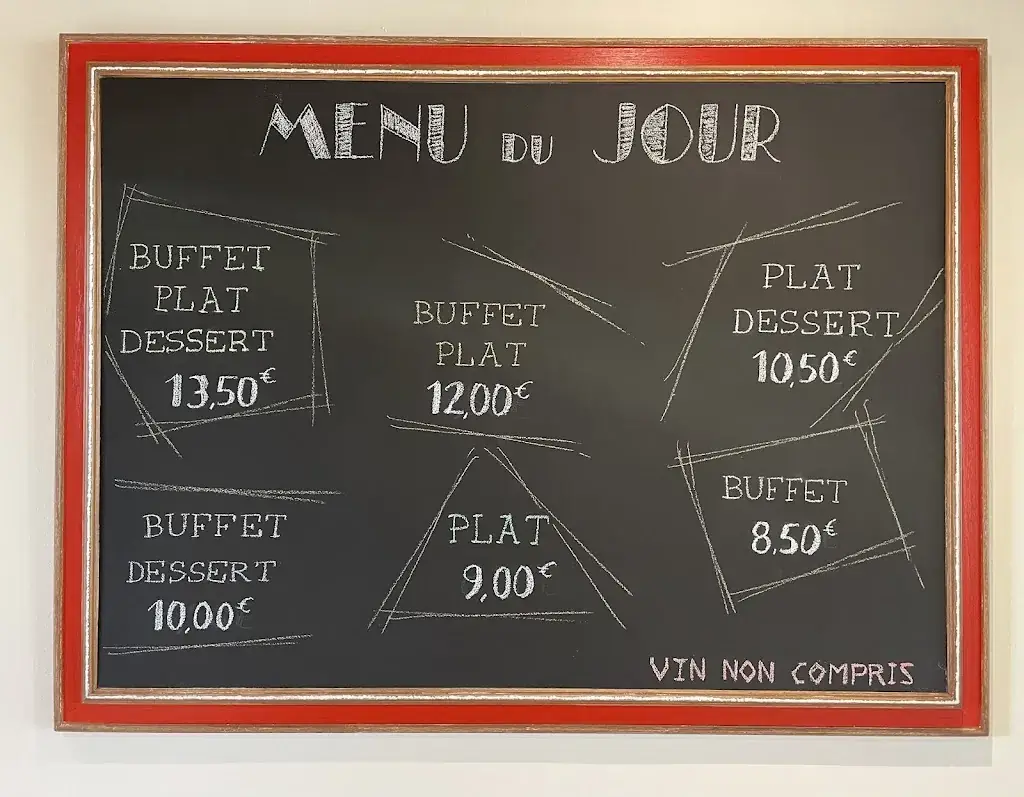 MENU DU JOUR
BUFFET
PLAT
DESSERT
13,50€
BUFFET
PLAT
12,00€
PLAT
DESSERT
10,50€
BUFFET
DESSERT
10,00€
PLAT
9,00€
BUFFET
8,50€
VIN NON COMPRIS